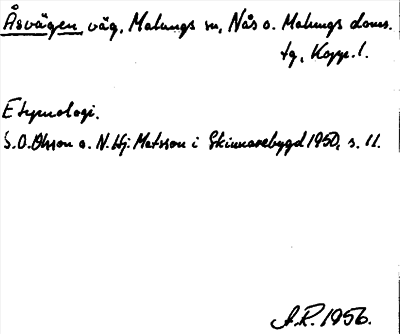 Åsvägen, väg, Malungs sn, Nås o. Malungs doms.
tg, Kopp. l.
Etymologi.
S. O. Olsson o. N. Hj. Matsson i Skinnarebygd 1950, s. 11.
A.R. 1956.